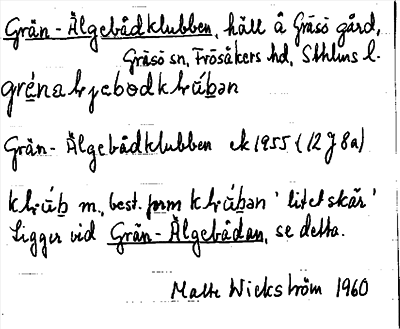 Grän-Älgebådklubben, häll å Gräsö gård,
Gräsö sn, Frösåkers hd, Sthlms l.
Grän-Älgebådklubben ek 1955 (12 J 8a)
m., best. form 'litet skär'
Ligger vid Grän-Älgebådan, se detta.
Malte Wickström 1960